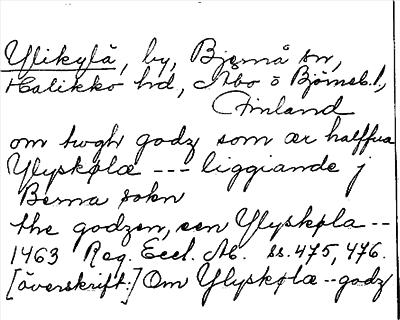 Ylikylä, by, Bjernå sn,
Halikko hd, Åbo o Björneb. l.,
Finland
om twgh godz som ær halffua
Ylyskølæ --- liggiande j
Berna sokn
the godzen, een Ylyskøla --
1463 Reg. Eccl. Ab. ss. 475, 476.
[överskrift:] Om Ylyskølæ -- godz